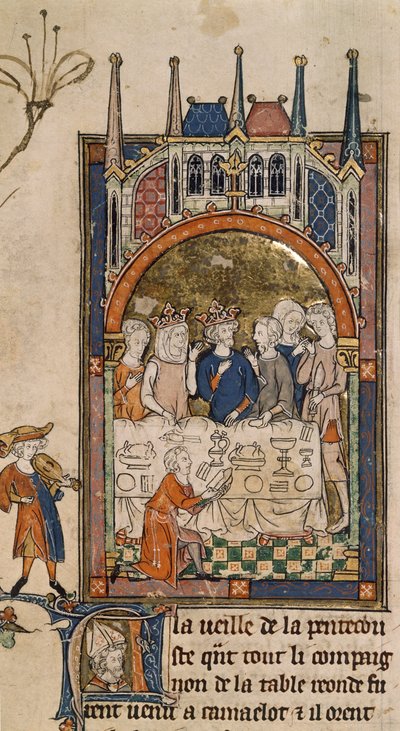 A la ueille de la pentecou
ste q̃nt tout li compaig
non de la table reonde fu
rent uenu a camaelot ⁊ il orent